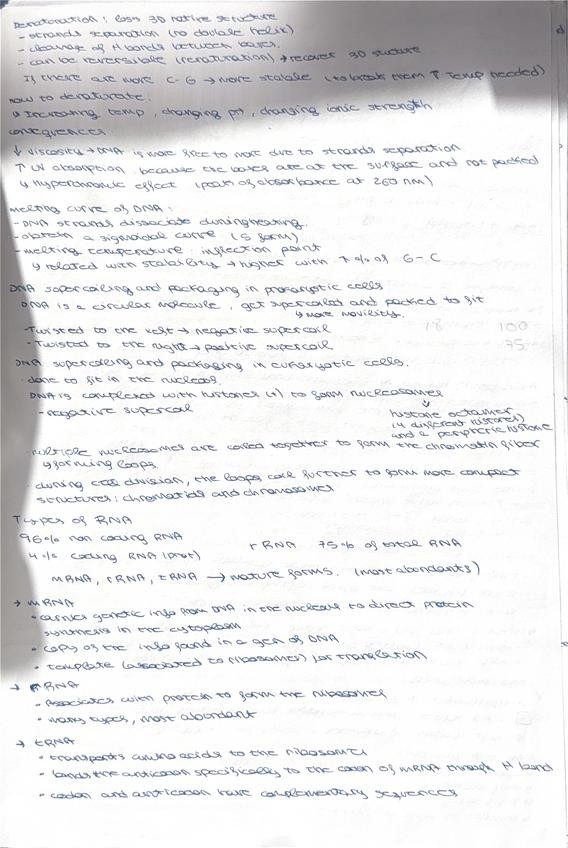 Denaturation: loss 3D native structure
- strands separation (no double helix)
- cleavage of H bonds between bases.
- can be reversible (renaturation) → recover 3D structure
If there are more C-G → more stable (to break them ↑ temp needed)
How to denaturate:
↳ Increasing temp, changing pH, changing ionic strength
consequences:
↓ viscosity → DNA is more free to move due to strands separation
↑ UV absorption because the bases are at the surface and not packed
↳ Hyperchromic effect (peak of absorbance at 260 nm)
Melting curve of DNA:
- DNA strands dissociate during heating.
- obtain a sigmoidal curve (S form)
- melting temperature: inflection point
↳ related with stability → higher with ↑ % of G-C
DNA supercoiling and packaging in prokaryotic cells
DNA is a circular molecule, get supercoiled and packed to fit
↳ more movility.
- Twisted to the left → negative supercoil 18 100
- Twisted to the right → positive supercoil 75
DNA supercoiling and packaging in eukaryotic cells.
done to fit in the nucleus.
DNA is complexed with histones (+) to form nucleosomes
- negative supercoil
histone octamer
(4 different histones)
and a peripheric histone
multiple nucleosomes are coiled together to form the chromatin fiber
↳ forming loops
during cell division, the loops coil further to form more compact
structures: chromatids and chromosomes
Types of RNA
96% non coding RNA
rRNA 75% of total RNA
4% coding RNA (prot)
mRNA, rRNA, tRNA → mature forms. (most abondants)
→ mRNA
• carries genetic info from DNA in the nucleus to direct protein
synthesis in the cytoplasm
• copy of the info found in a gen of DNA
• template (associated to ribosomes) for translation
→ rRNA
• Associates with protein to form the ribosomes
• many types, most abundant
→ tRNA
• transports amino acids to the ribosomes
• bonds the anticodon specifically to the codon of mRNA through H bond
• codon and anticodon have complementary sequences